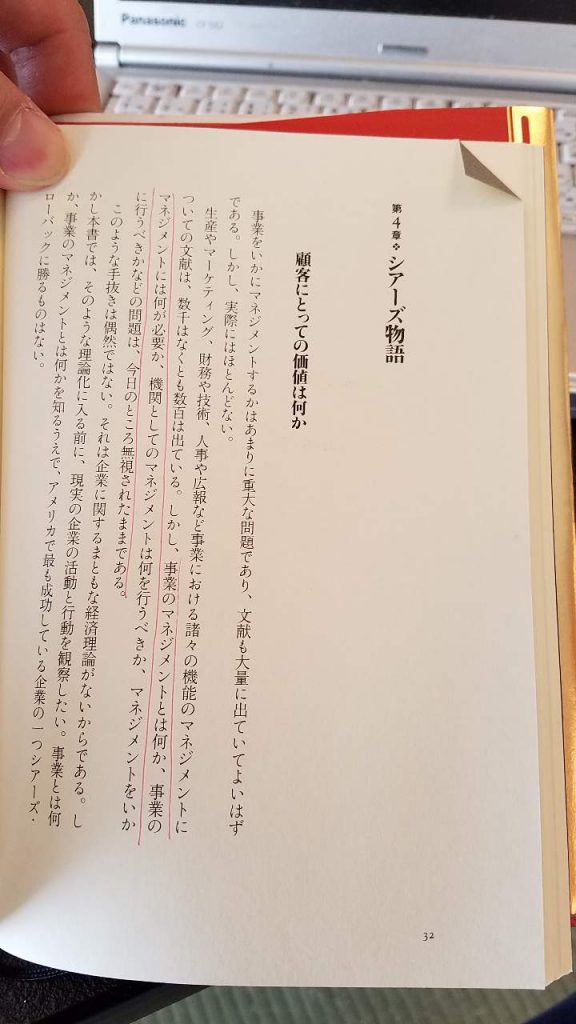 Panasonic
第4章❖シアーズ物語
顧客にとっての価値は何か
事業をいかにマネジメントするかはあまりに重大な問題であり、文献も大量に出ていてよいはず
である。しかし、実際にはほとんどない。
生産やマーケティング、財務や技術、人事や広報など事業における諸々の機能のマネジメントに
ついての文献は、数千はなくとも数百は出ている。しかし、事業のマネジメントとは何か、事業の
マネジメントには何が必要か、機関としてのマネジメントは何を行うべきか、マネジメントをいか
に行うべきかなどの問題は、今日のところ無視されたままである。
このような手抜きは偶然ではない。それは企業に関するまともな経済理論がないからである。し
かし本書では、そのような理論化に入る前に、現実の企業の活動と行動を観察したい。事業とは何
か、事業のマネジメントとは何かを知るうえで、アメリカで最も成功している企業の一つシアーズ・
ローバックに勝るものはない。
32